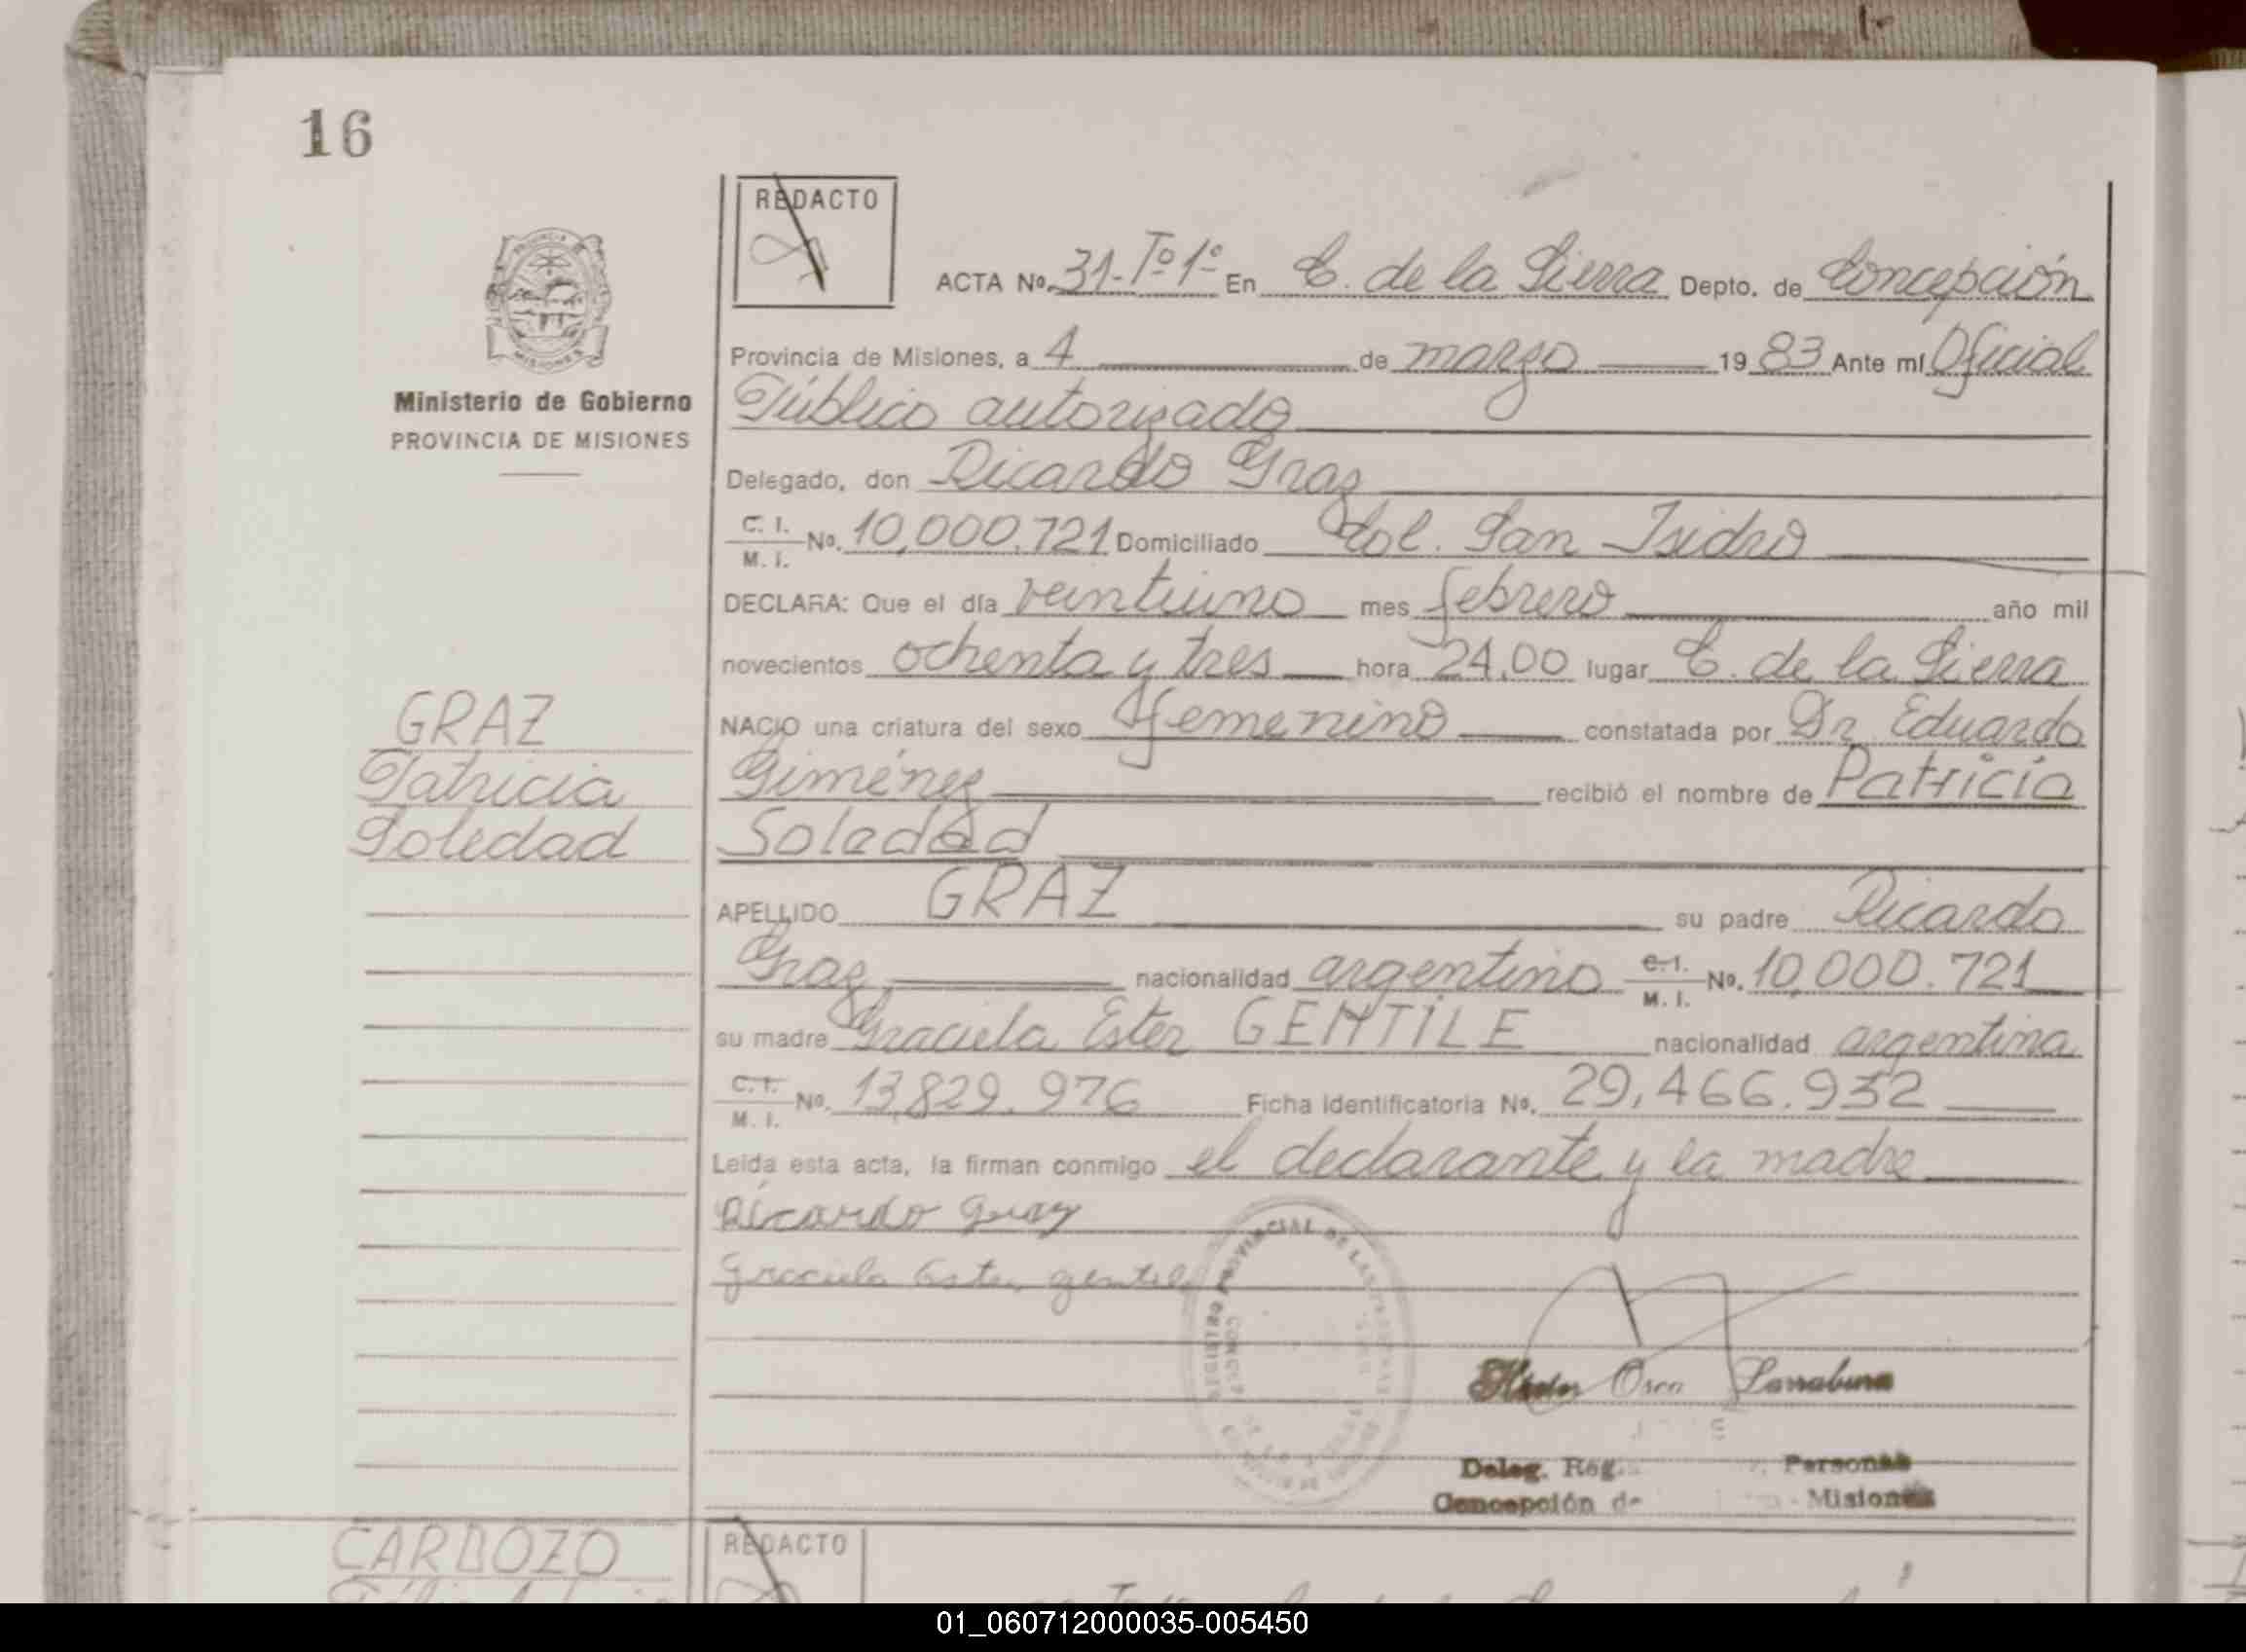 16
REDACTO
ACTA Nº. 31-Tº 1º En C. de la Sierra Depto. de Concepción
Provincia de Misiones, a 4 de marzo 1983 Ante mí Oficial
Ministerio de Gobierno
PROVINCIA DE MISIONES
Público autorizado
Delegado, don Ricardo Graz
C. I. M. I. Nº. 10,000.721 Domiciliado Col. San Isidro
DECLARA: Que el día veintiuno mes febrero año mil
novecientos ochenta y tres hora 24,00 lugar C. de la Sierra
GRAZ
Patricia
Soledad
NACIO una criatura del sexo femenino constatada por Dr. Eduardo
Giménez recibió el nombre de Patricia
Soledad
APELLIDO GRAZ su padre Ricardo
Graz nacionalidad argentino C. I. M. I. Nº. 10,000.721
su madre Graciela Ester GENTILE nacionalidad argentina
C. I. M. I. Nº. 13,829.976 Ficha Identificatoria Nº. 29,466.932
Leída esta acta, la firman conmigo el declarante y la madre
Ricardo Graz
Graciela Ester gentile
REGISTRO PROVINCIAL DE LAS
Deleg. Reg. Personas
Concepción de Misiones
CARDOZO
REDACTO
01_060712000035-005450